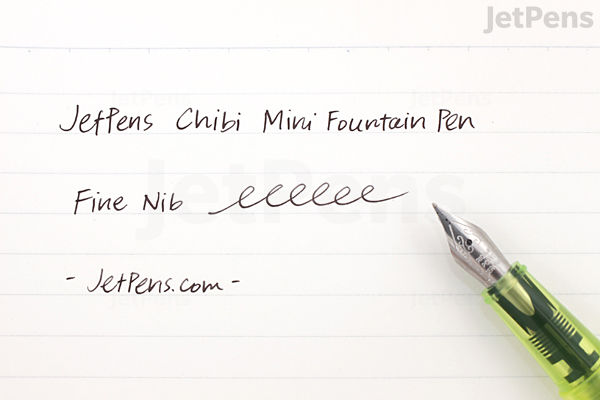 JetPens
JetPens Chibi Mini Fountain Pen
Fine Nib
- JetPens.com -